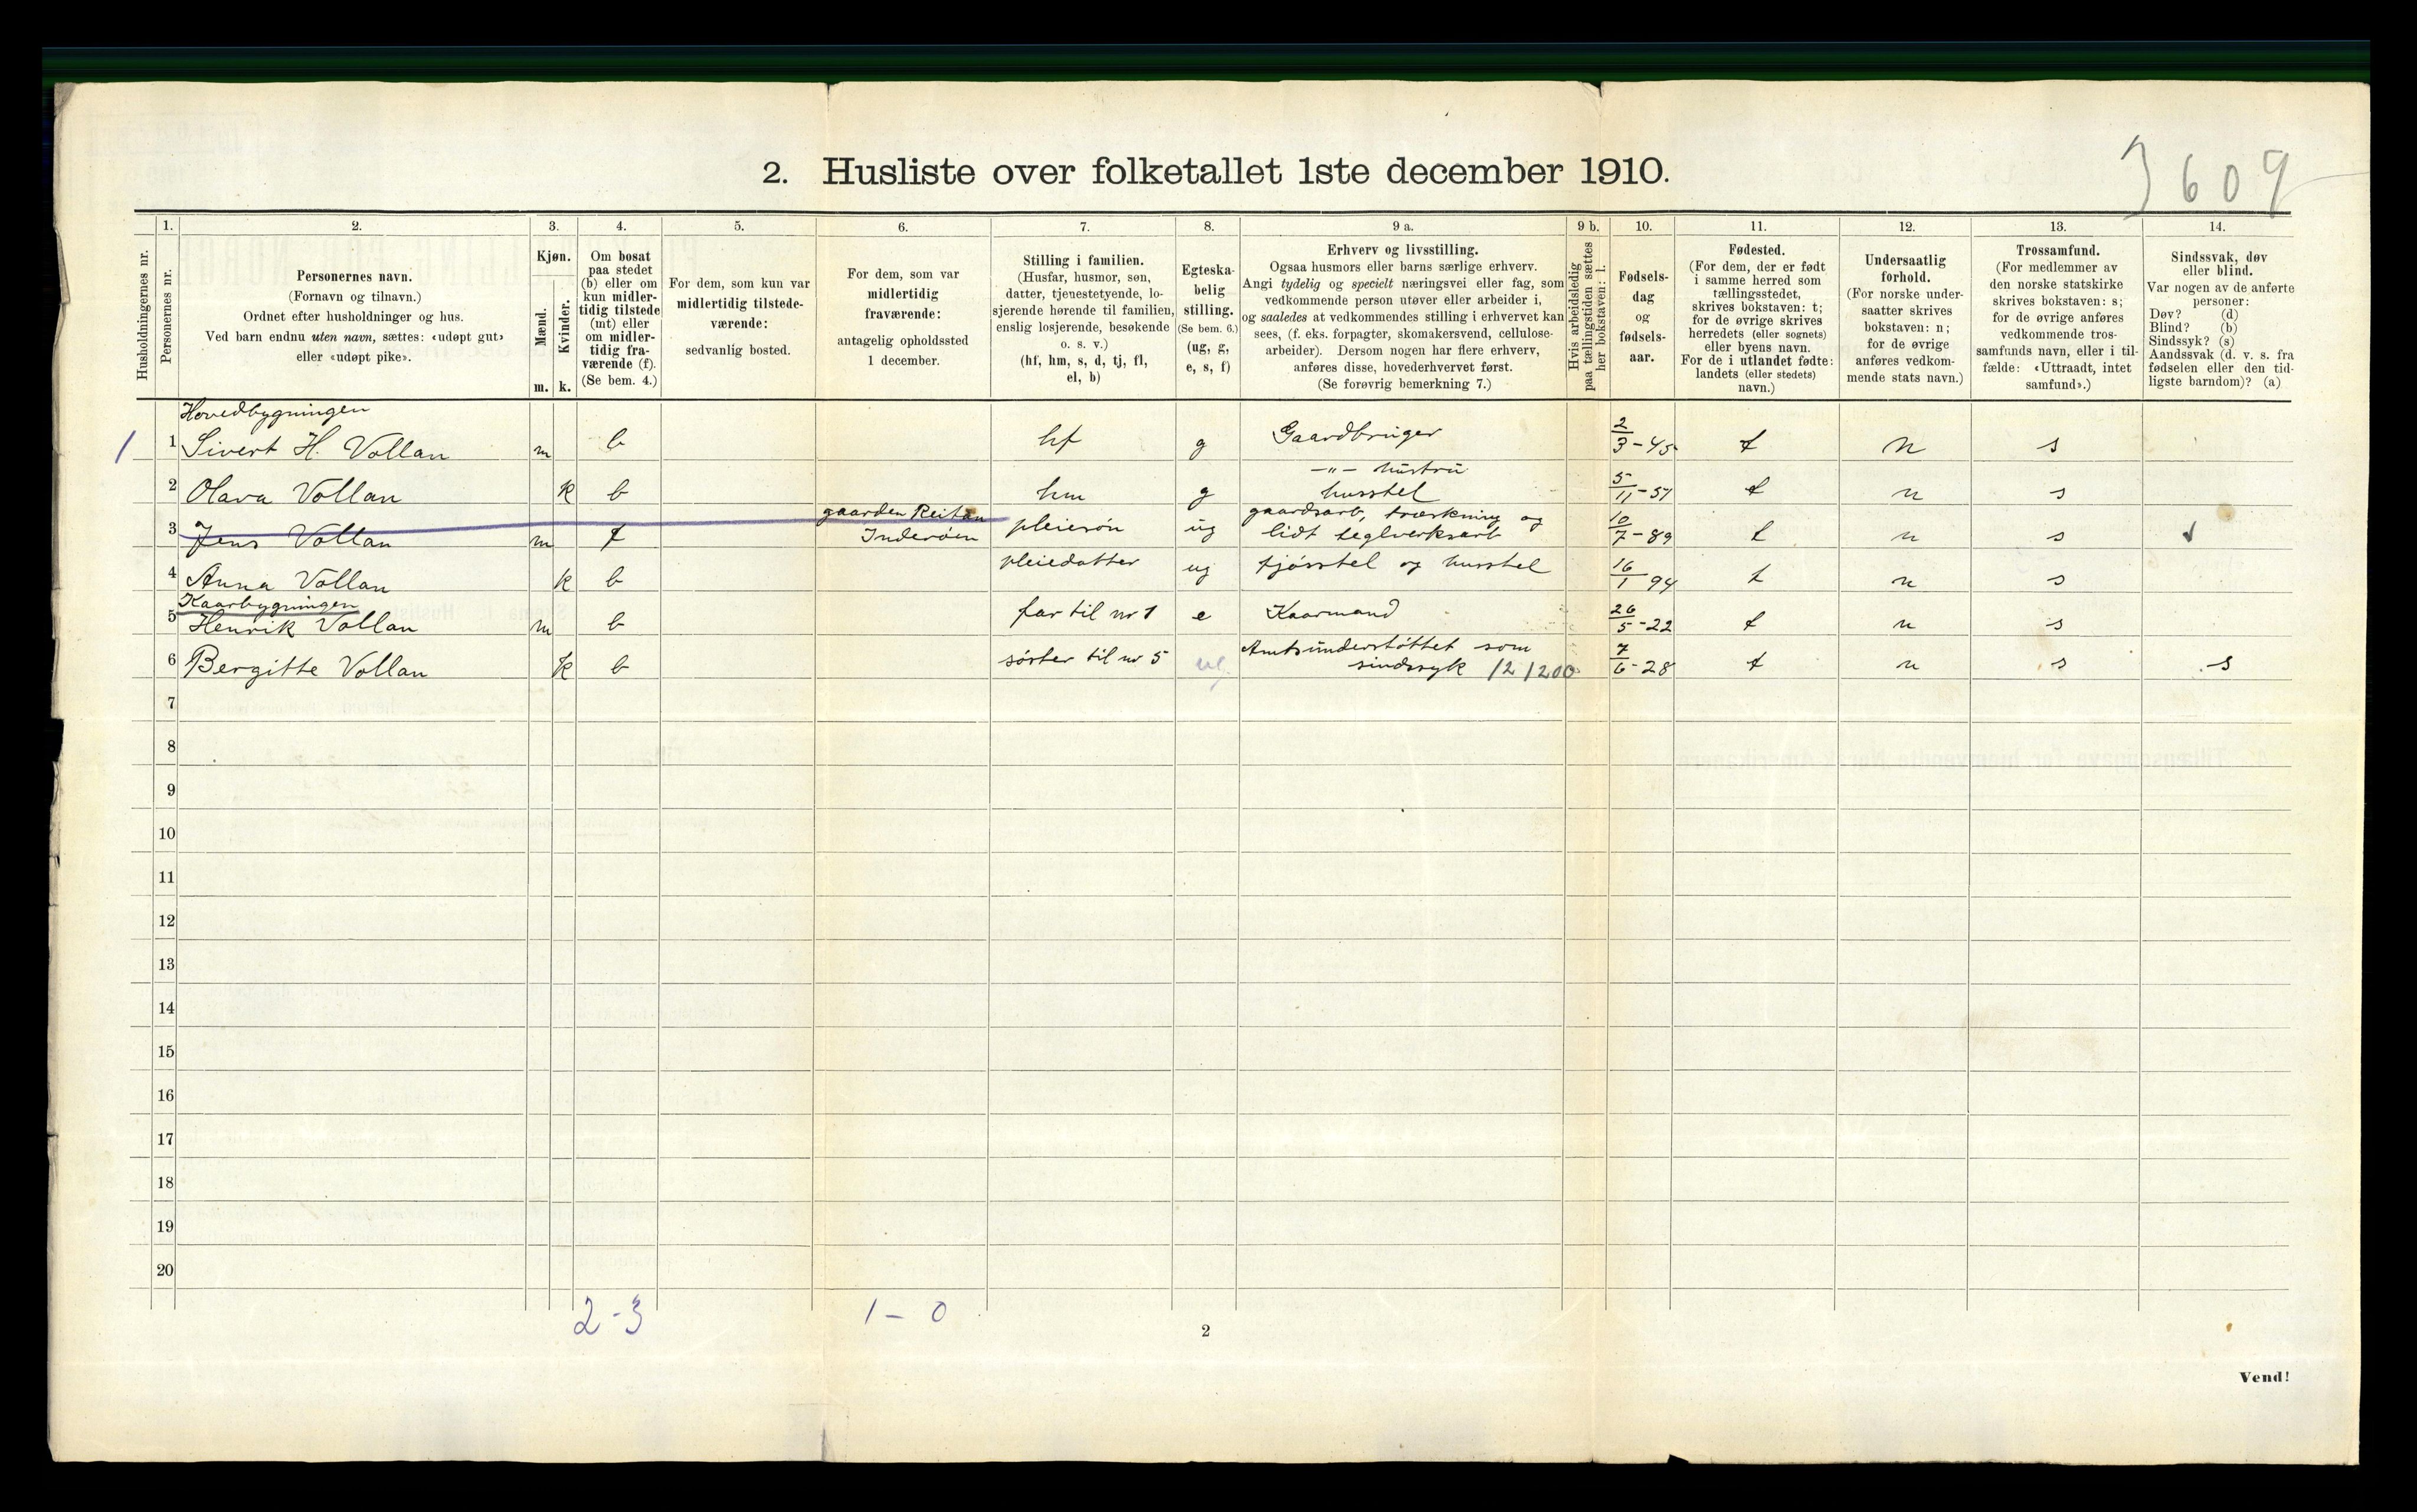 3609
2. Husliste over folketallet 1ste december 1910.
Husholdningernes nr.
1.
Personernes nr.
2.
Personernes navn.
(Fornavn og tilnavn.)
Ordnet efter husholdninger og hus.
Ved barn endnu uten navn, sættes: «udøpt gut»
eller «udøpt pike».
3.
Kjøn.
Mænd.
Kvinder.
m. k.
4.
Om bosat
paa stedet
(b) eller om
kun midler-
tidig tilstede
(mt) eller
om midler-
tidig fra-
værende (f).
(Se bem. 4.)
5.
For dem, som kun var
midlertidig tilstede-
værende:
sedvanlig bosted.
6.
For dem, som var
midlertidig
fraværende:
antagelig opholdssted
1 december.
7.
Stilling i familien.
(Husfar, husmor, søn,
datter, tjenestetyende, lo-
sjerende hørende til familien,
enslig losjerende, besøkende
o. s. v.)
(hf, hm, s, d, tj, fl,
el, b)
8.
Egteska-
belig
stilling.
(Se bem. 6.)
(ug, g,
e, s, f)
9 a.
Erhverv og livsstilling.
Ogsaa husmors eller barns særlige erhverv.
Angi tydelig og specielt næringsvei eller fag, som
vedkommende person utøver eller arbeider i,
og saaledes at vedkommendes stilling i erhvervet kan
sees, (f. eks. forpagter, skomakersvend, cellulose-
arbeider). Dersom nogen har flere erhverv,
anføres disse, hovederhvervet først.
(Se forøvrig bemerkning 7.)
9 b.
Hvis arbeidsledig
paa tællingstiden sættes
her bokstaven: l.
10.
Fødsels-
dag
og
fødsels-
aar.
11.
Fødested.
(For dem, der er født
i samme herred som
tællingsstedet,
skrives bokstaven: t;
for de øvrige skrives
herredets (eller sognets)
eller byens navn.
For de i utlandet fødte:
landets (eller stedets)
navn.)
12.
Undersaatlig
forhold.
(For norske under-
saatter skrives
bokstaven: n;
for de øvrige
anføres vedkom-
mende stats navn.)
13.
Trossamfund.
(For medlemmer av
den norske statskirke
skrives bokstaven: s;
for de øvrige anføres
vedkommende tros-
samfunds navn, eller i til-
fælde: «Uttraadt, intet
samfund».)
14.
Sindssvak, døv
eller blind.
Var nogen av de anførte
personer:
Døv? (d)
Blind? (b)
Sindssyk? (s)
Aandssvak (d. v. s. fra
fødselen eller den tid-
ligste barndom)? (a)
Hovedbygningen
1 1 Sivert H. Vollan m b hf g Gaardbruger 2/3-45 t n s
2 Olava Vollan k b hm g -"- hustru husstel 5/11-57 t n s
3 Jens Vollan m f gaarden Reitan Inderøen pleiesøn ug gaardsarb, træskning og lidt teglverksarb 10/7-89 t n s
4 Anna Vollan k b pleiedatter ug fjøsstel og husstel 16/1 94 t n s
Kaarbygningen
5 Henrik Vollan m b far til nr 1 e Kaarmand 26/5-22 t n s
6 Bergitte Vollan k b søster til nr 5 ug Amtsunderstøttet som sindssyk 12 1200 7/6-28 t n s s
7
8
9
10
11
12
13
14
15
16
17
18
19
20
2-3 1-0
2
Vend!